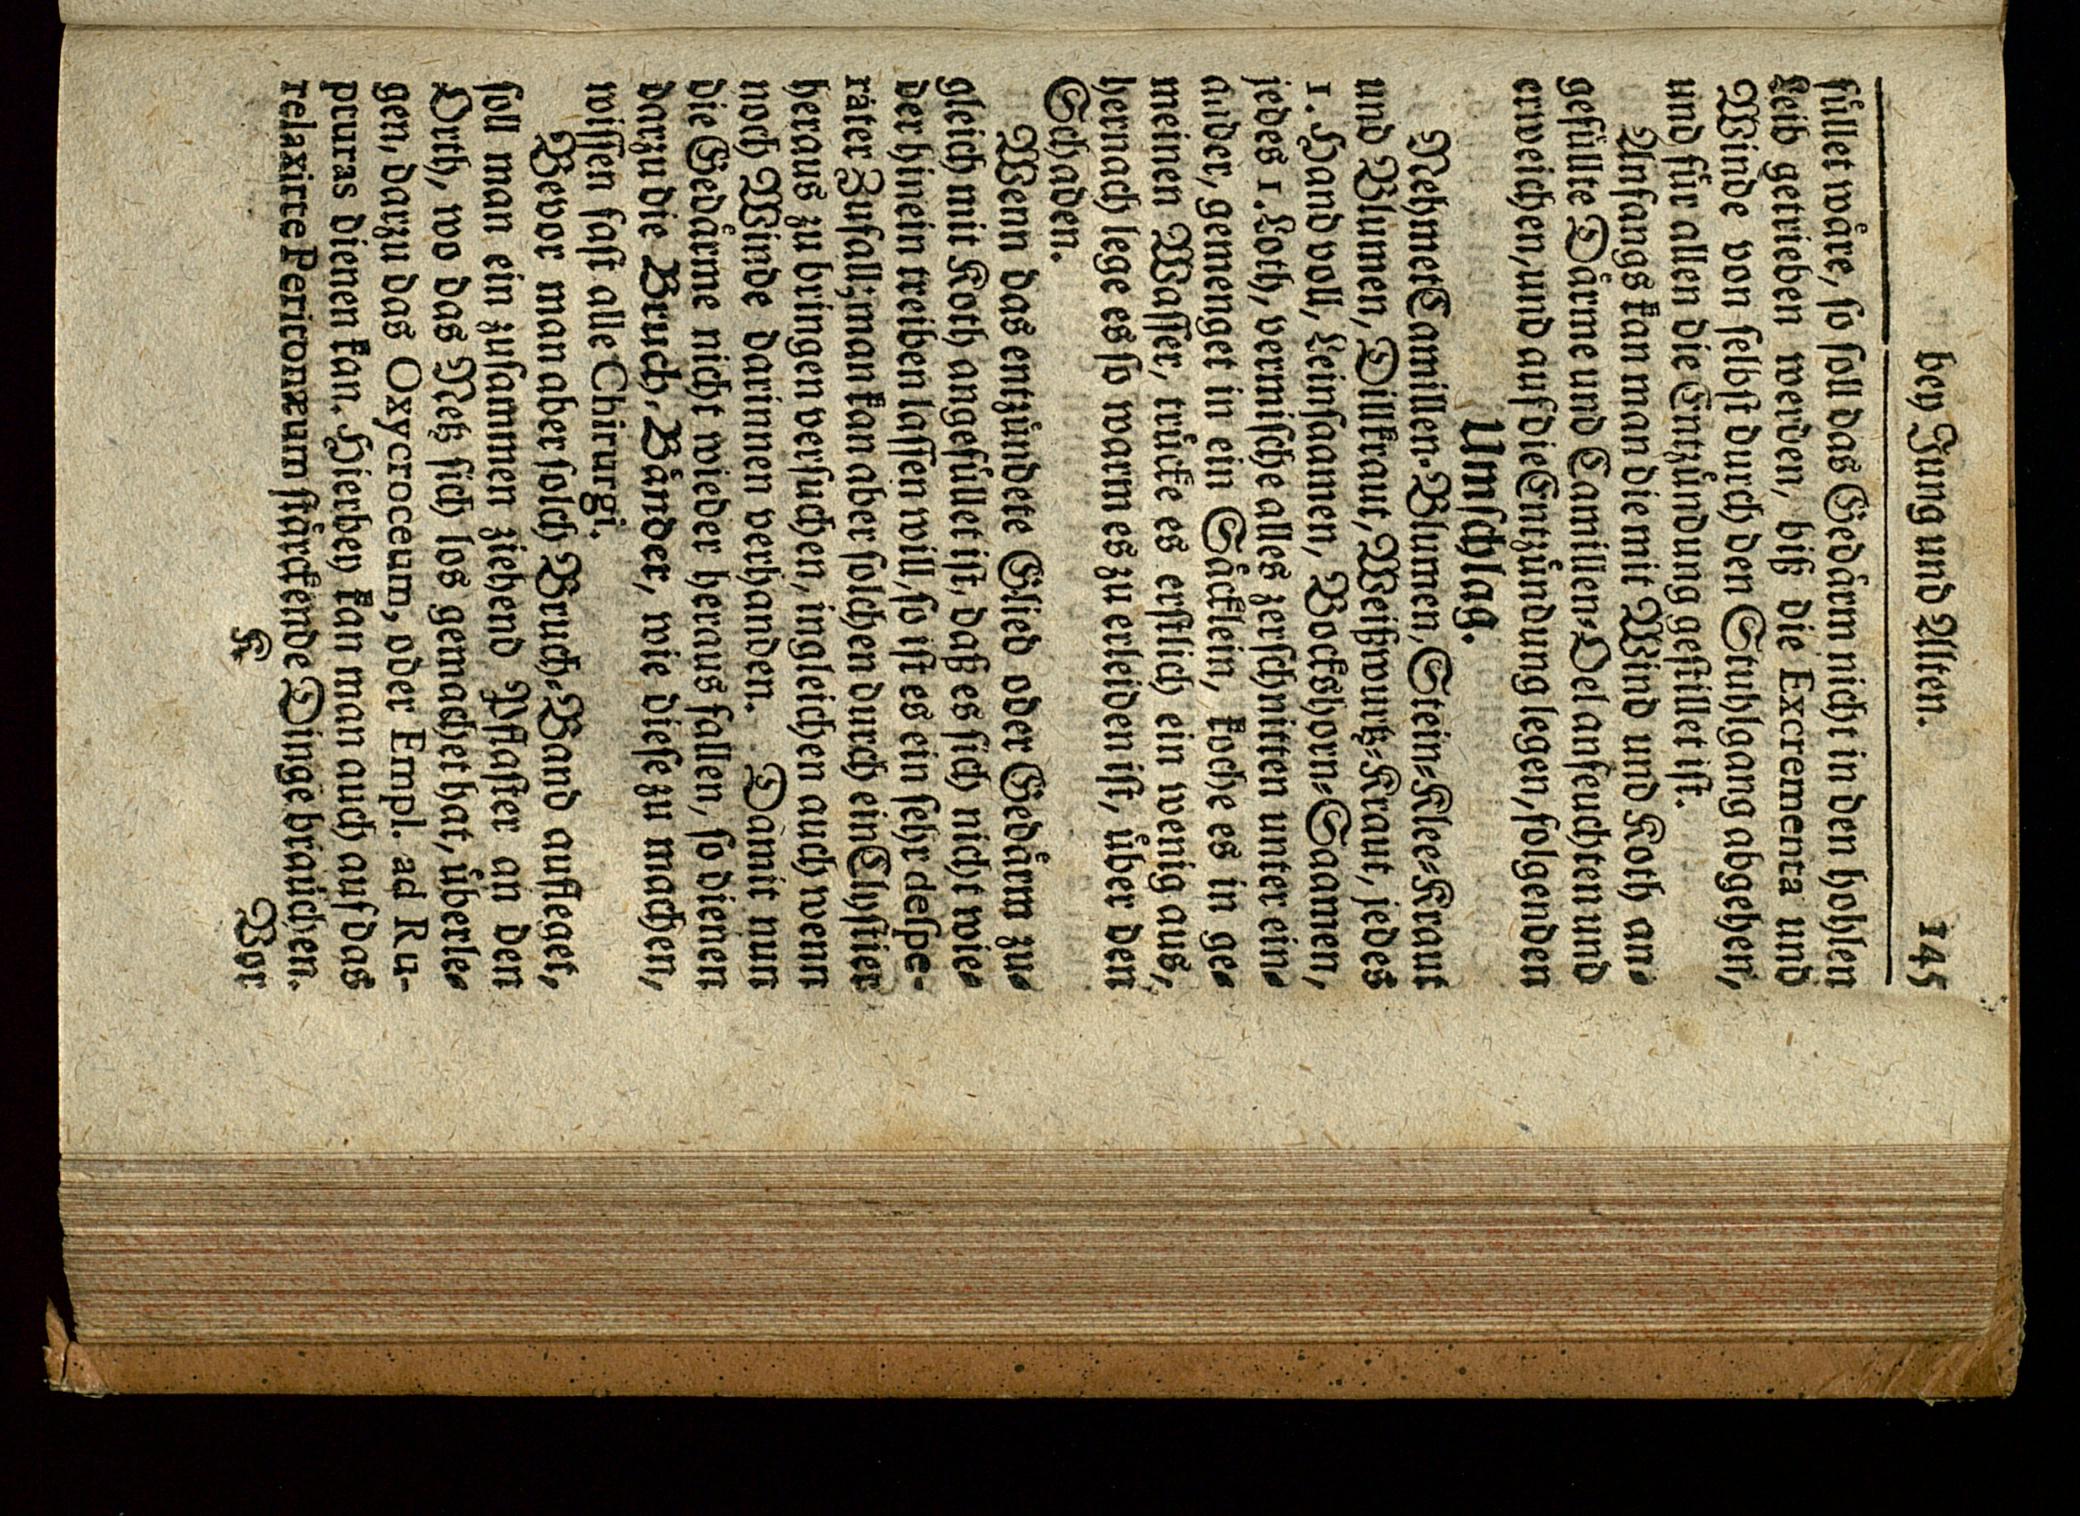 bey Jung und Alten. 145
fuͤllet waͤre, so soll das Gedaͤrm nicht in den hohlen
Leib getrieben werden, biß die Excrementa und
Winde von selbst durch den Stuhlgang abgehen,
und fuͤr allen die Entzuͤndung gestillet ist.
Anfangs kan man die mit Wind und Koth an-
gefuͤllte Daͤrme und Camillen-Oel anfeuchten und
erweichen, und auf die Entzuͤndung legen, folgenden
Umschlag.
Nehmet Camillen-Blumen, Stein-Klee-Kraut
und Blumen, Dillkraut, Weißwurtz-Kraut, jedes
1. Hand voll, Leinsaamen, Bockshorn-Saamen,
jedes 1. Loth, vermische alles zerschnitten unter ein-
ander, gemenget in ein Saͤcklein, koche es in ge-
meinen Wasser, truͤcke es erstlich ein wenig aus,
hernach lege es so warm es zu erleiden ist, uͤber den
Schaden.
Wenn das entzuͤndete Glied oder Gedaͤrm zu-
gleich mit Koth angefuͤllet ist, daß es sich nicht wie-
der hinein treiben lassen will, so ist es ein sehr despe-
rater Zufall; man kan aber solchen durch ein Clystier
heraus zu bringen versuchen, ingleichen auch wenn
noch Winde darinnen verhanden. Damit nun
die Gedaͤrme nicht wieder heraus fallen, so dienen
darzu die Bruch-Baͤnder, wie diese zu machen,
wissen fast alle Chirurgi.
Bevor man aber solch Bruch-Band aufleget,
soll man ein zusammen ziehend Pflaster an den
Orth, wo das Netz sich los gemachet hat, uͤberle-
gen, darzu das Oxycroceum, oder Empl. ad Ru-
pturas dienen kan. Hierbey kan man auch auf das
relaxirte Peritonæum staͤrckende Dinge brauchen.
K Vor